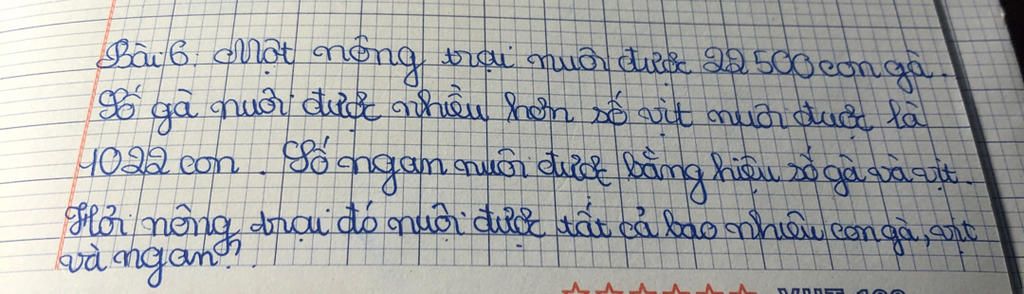 Bài 6: Một nông trại nuôi được 22500 con gà.
Số gà nuôi được nhiều hơn số vịt nuôi được là
1022 con. Số ngan nuôi được bằng hiệu số gà và vịt.
Hỏi nông trại đó nuôi được tất cả bao nhiêu con gà, vịt
và ngan?